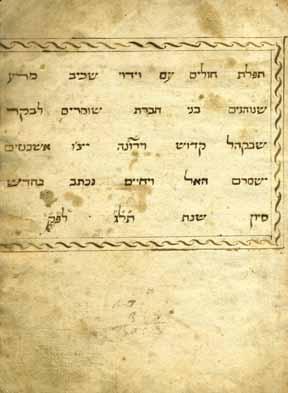 תפלת חולים עם וידוי שכיב מרע
שנוהגים בני חברת שומרים לבקר
שבקהל קדוש וירונה יצ״ו אשכנזים
ישמרם האל ויחיים נכתב בחדש
סיון שנת תל״ג לפ״ק